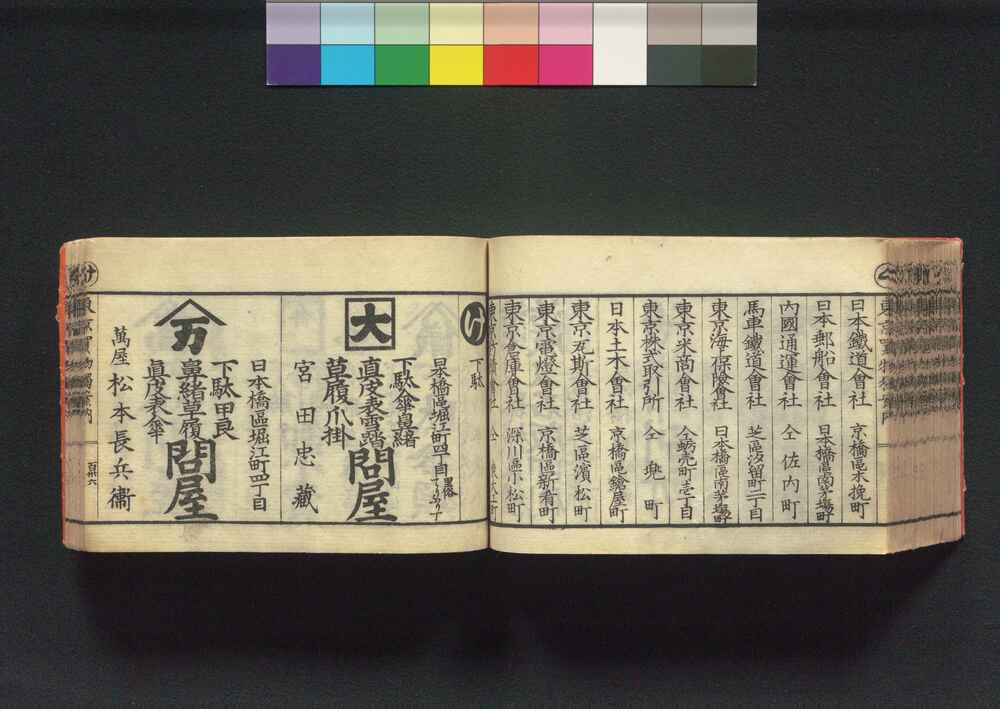 日本鐵道會社 京橋區木挽町
日本郵船會社 日本橋區南茅場町
內國通運會社 仝佐內町
馬車鐵道會社 芝區汐留町二丁目
東京海上保險會社 日本橋區南茅場町
東京米商會社 仝蛎売町壱丁目
東京株式取引所 仝兜町
日本土木會社 京橋區鎗屋町
東京瓦斯會社 芝區濱松町
東京電燈會社 京橋區新肴町
東京倉庫會社 深川區小松町
け 下駄
日本橋區堀江町四丁目
大
下駄傘鼻緒
真虎表雪踏
草履爪掛
問屋
宮田忠藏
日本橋區堀江町四丁目
万
下駄甲良
鼻緒草履
真虎表傘
問屋
萬屋 松本長兵衞
け